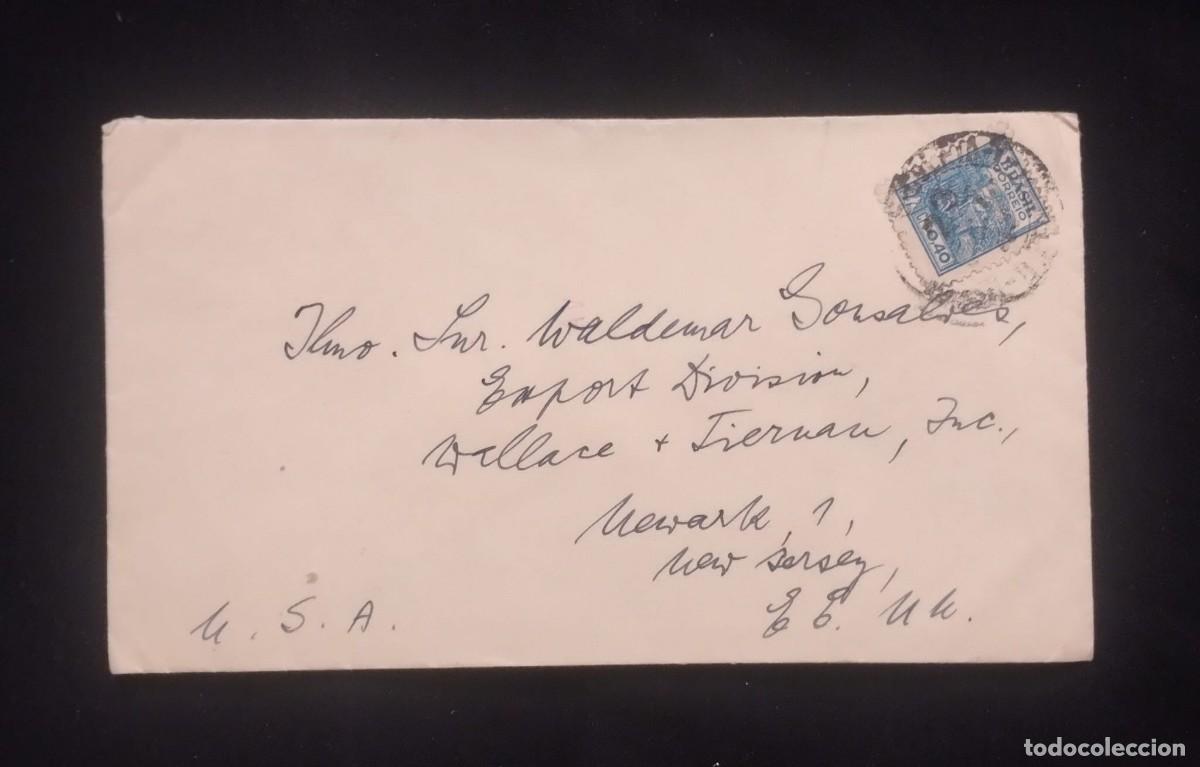 BRASIL
CORREIO
0.40
Ilmo. Snr. Waldemar Gonsalves,
Export Division,
Wallace + Tiernan, Inc.,
Newark, 1,
New Jersey,
E E. U U.
U. S. A.
todocoleccion